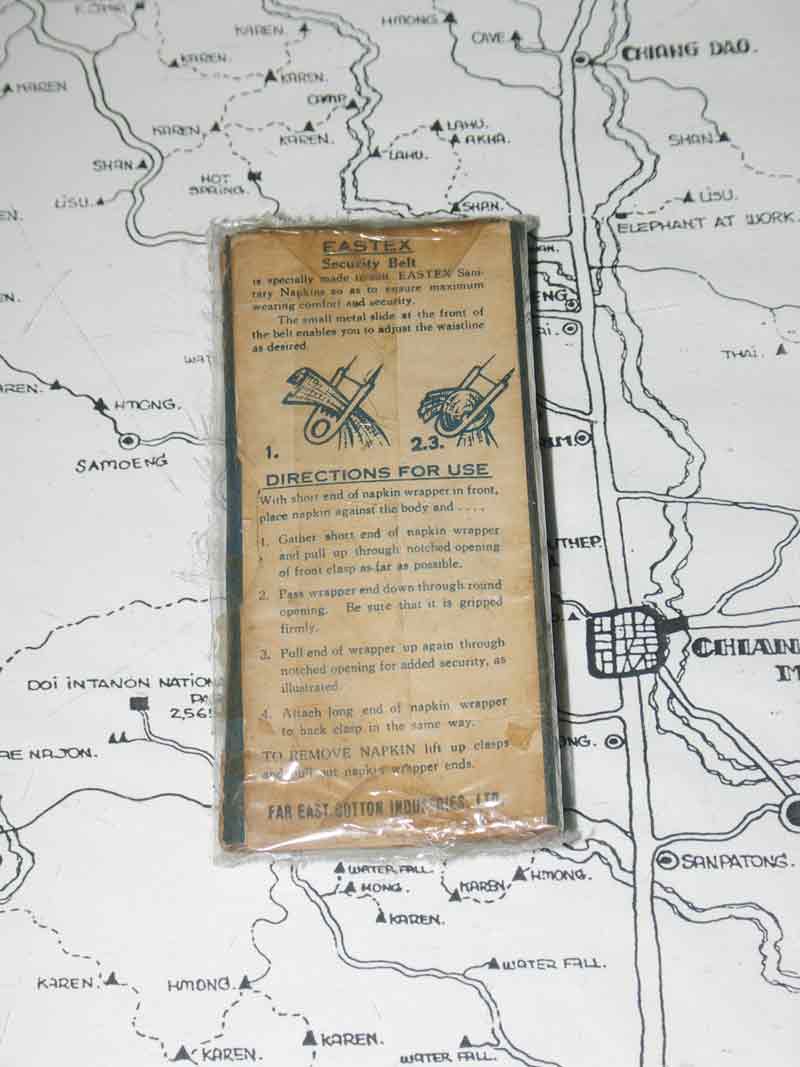 K.CAMP
KAREN.
HMONG.
CAVE
CHIANG DAO.
KAREN.
KAREN.
KAREN
CAMP
KAREN.
KAREN.
LAHU.
AKHA.
LAHU.
SHAN.
SHAN
HOT
SPRING.
LISU.
LISU.
SHAN.
ELEPHANT AT WORK.
EN.
EASTEX
Security Belt
is specially made to suit EASTEX Sani-
tary Napkins so as to ensure maximum
wearing comfort and security.
The small metal slide at the front of
the belt enables you to adjust the waistline
as desired.
1.
2.3.
DIRECTIONS FOR USE
With short end of napkin wrapper in front,
place napkin against the body and ....
1. Gather short end of napkin wrapper
and pull up through notched opening
of front clasp as far as possible.
2. Pass wrapper end down through round
opening. Be sure that it is gripped
firmly.
3. Pull end of wrapper up again through
notched opening for added security, as
illustrated.
4. Attach long end of napkin wrapper
to back clasp in the same way.
TO REMOVE NAPKIN lift up clasps
and pull out napkin wrapper ends.
FAR EAST COTTON INDUSTRIES, LTD.
EN.
ENG.
AI.
THAI.
WAT
REN.
HMONG.
SAMOENG
M.
UTHEP.
CHIAN
M
DOI INTANON NATION
PA
2,565
AE NAJON.
ONG.
SANPATONG.
WATER FALL.
MONG.
KAREN.
HMONG.
KAREN.
WATER FALL.
KAREN.
HMONG.
KAREN.
KAREN.
WATER FALL.